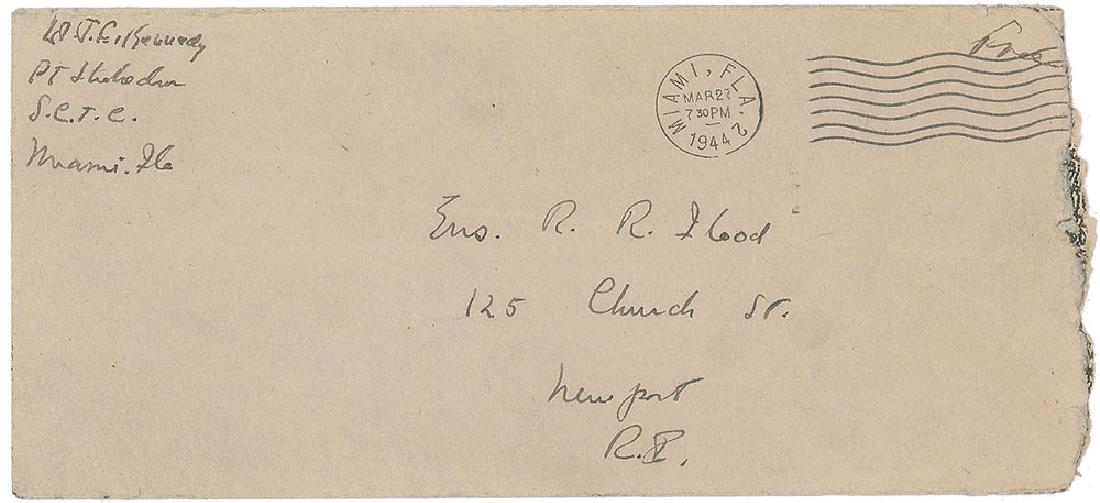 Lt J. F. Kennedy
PT Shakedown
S.C.T.C.
Miami. Fla
MIAMI, FLA. 2
MAR 27
7 30 PM
1944
Free
Ens. R. R. Flood
125 Church St.
Newport
R.I.